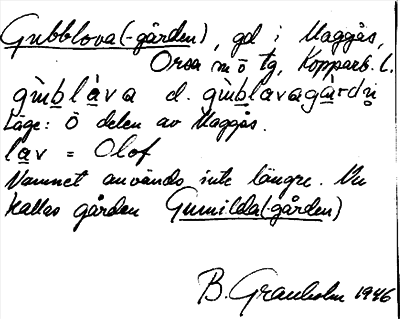 Gubblova(-gården), gd i Maggås,
Orsa sn ö tg, Kopparb. l.
gùblàva d. gùblavagàrdn̥
Läge: Ö delen av Maggås.
lav = Olof
Namnet används inte längre. Nu
kallas gården Gunnilda(-gården)
B. Granholm 1946